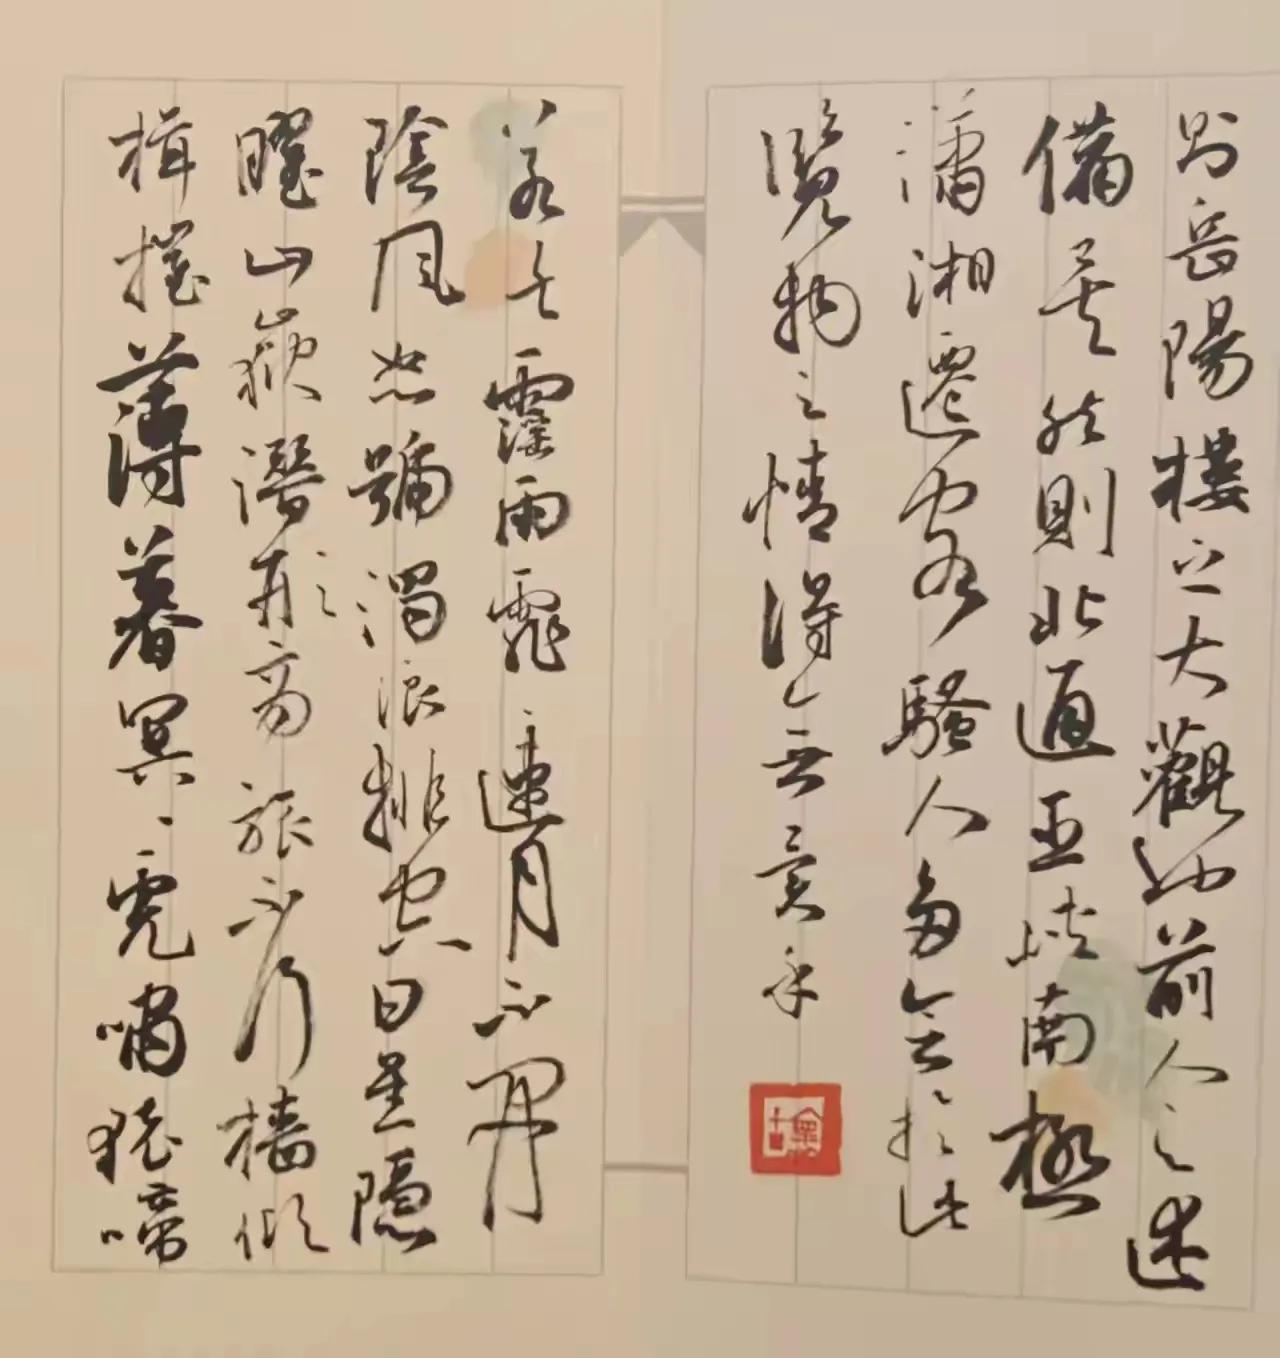 则岳陽樓之大觀也前人之述
備矣然則北通巫峽南極
瀟湘遷客騷人多會於此
覽物之情得無異乎
若夫霪雨霏、連月不開
陰風怒號濁浪排空日星隱
曜山嶽潛形商旅不行檣傾
楫摧薄暮冥、虎嘯猿啼